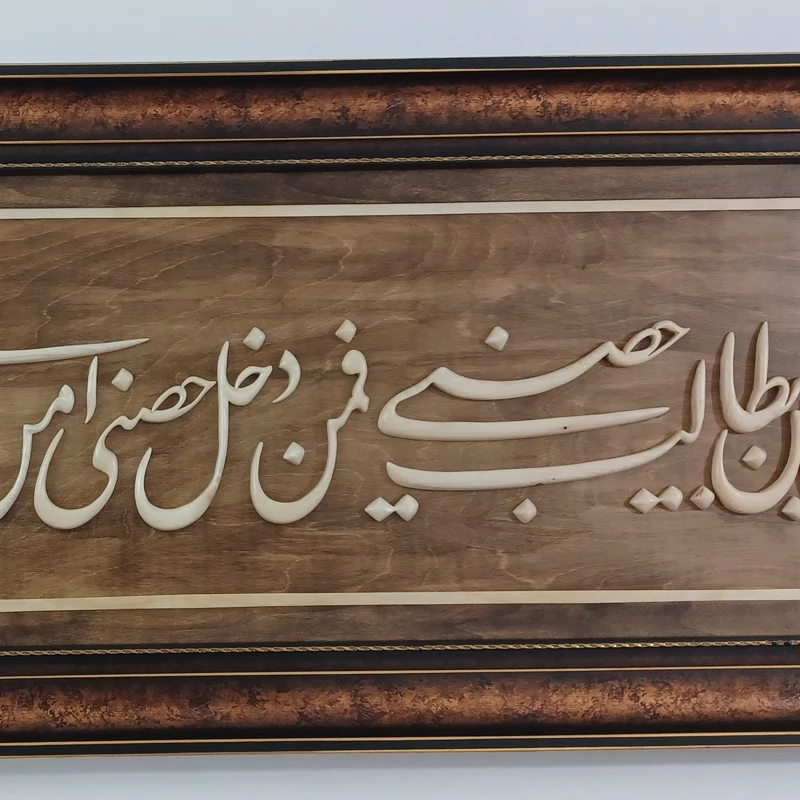 طالب حصنی فمن دخل حصنی